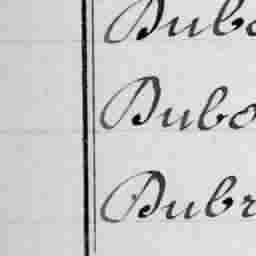 Dubo
Dubo
Dubr